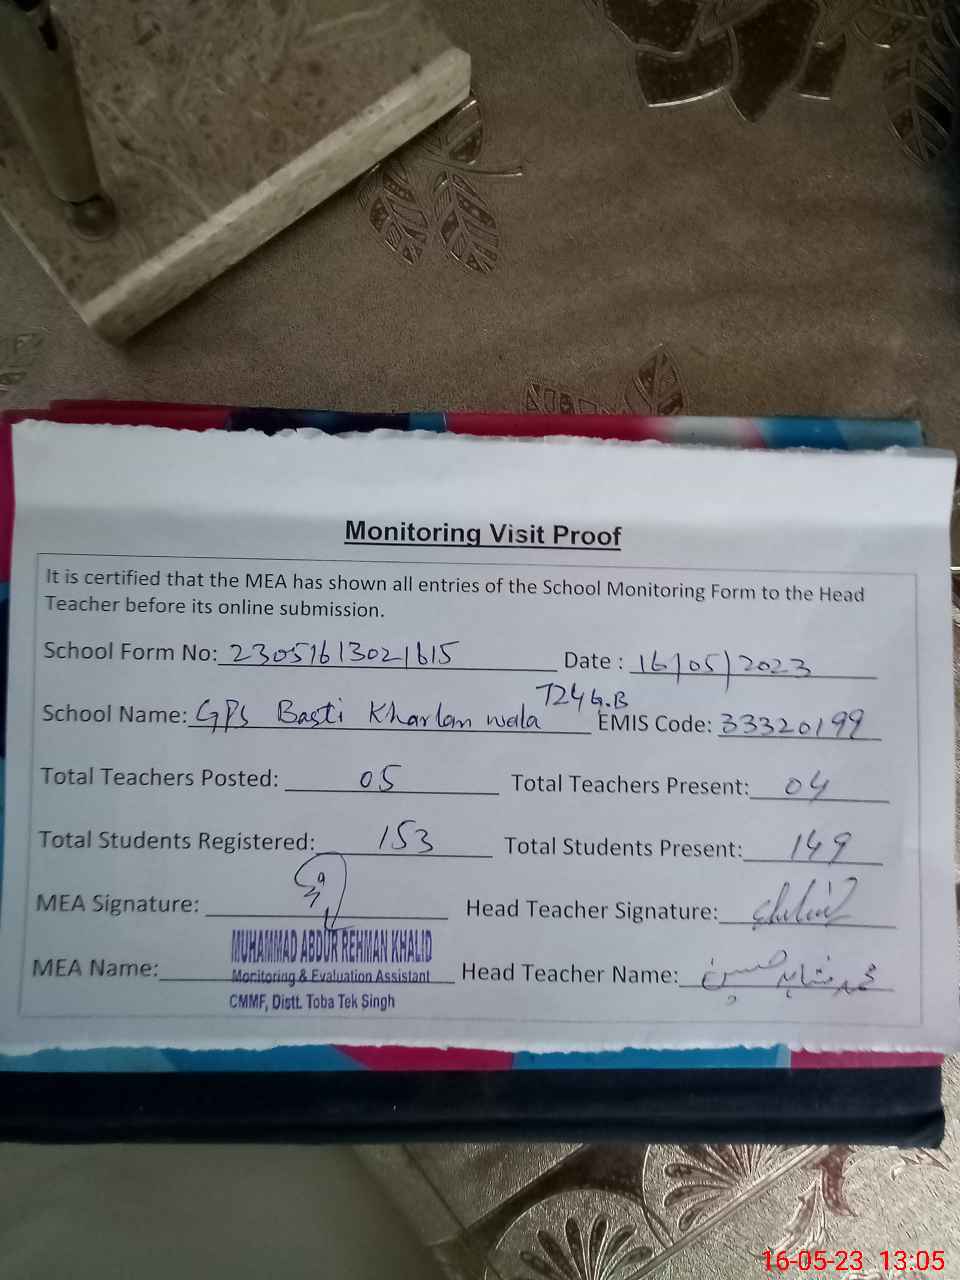 Monitoring Visit Proof
It is certified that the MEA has shown all entries of the School Monitoring Form to the Head
Teacher before its online submission.
School Form No: 23051613021615 Date : 16/05/2023
School Name: GPS Basti Kharlan wala 724 G.B EMIS Code: 33320199
Total Teachers Posted: 05 Total Teachers Present: 04
Total Students Registered: 153 Total Students Present: 149
MEA Signature: Head Teacher Signature:
MUHAMMAD ABDUR REHMAN KHALID
MEA Name: Monitoring & Evaluation Assistant Head Teacher Name: محمد شاہد حسین
CMMF, Distt. Toba Tek Singh
16-05-23 13:05